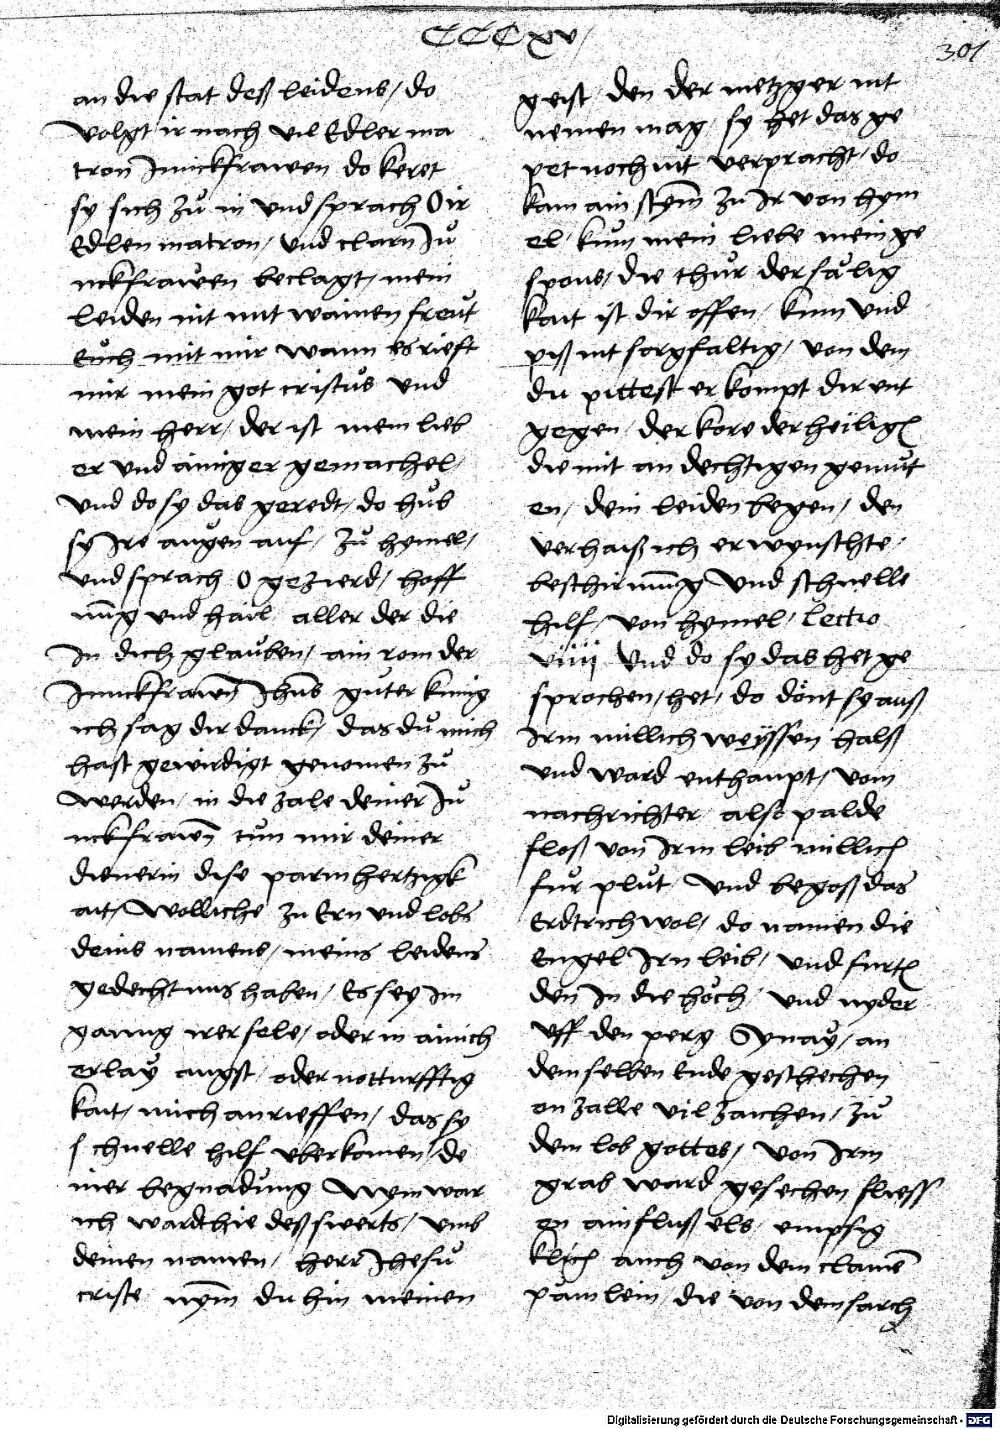 CCCxv/
301
an die stat deß leidens/ do
volgt ir nach vil Edler ma
tron Junckfrawen do keret
sy sich zů in vnd sprach O ir
Edlen matron/ vnd clarn Ju
nckfrawen beclagt/ mein
leiden nit mit wainen freut
Euch mit mir wann es rieft
mir mein got cristůs vnd
mein herr/ der ist mein lieb
er vnd ainiger gemachel/
vnd do sy das geredt/ do hůb
sy Ire augen auf/ zů hymel/
vnd sprach O gezierd/ hoff
nūg vnd hail aller der die
In dich glauben/ ain rom der
Junckfrawē Jhūs guter kunig
ich sag dir danck/ das dů mich
hast gewirdigt genomen zů
werden/ in die zale deiner Ju
nckfrawē tun mir deiner
dienerin dise parmhertzigk
ait/ Wolliche zu Ern vnd lobs
deins namens/ meins leidens
gedechtnus haben/ Es sey Im
gaung irer sele/ oder in ainich
erlay angst/ oder notturfftig
kait/ mich anrieffen/ das sy
schnelle hilf vberkomen/ de
iner begnadung Nym war
ich ward hie deß swerts/ vmb
deinen namen/ herr Jhesů
criste nym̄ du hin meinen
geist den der metzger nit
nemen mag/ sy het das ge
pet noch nit verpracht/ do
kam ain stym̄ zu Ir von hym
el/ kum mein liebe mein ge
spons/ die thůr der sälig
kait ist dir offen/ kum vnd
piß nit sorgfaltig/ von dem
du pittest er kompt dir ent
gegen/ der kore der heilige
die mit andechtigen gemůt
en/ dein leiden begen/ den
verhaiß ich erwynschte/
beschirmūg vnd schnelle
hilf/ von hymel/ Lectio
viiij Vnd do sy das het ge
sprochen/ het/ do dönt sy auß
Irm millich weyssen halß
vnd ward enthaupt/ vom
nachrichter/ also palde
floß von Irm leib millich
fůr plůt/ Vnd begoß das
Erdtrich wol/ do namen die
Engel Irn leib/ vnd furte
den In die hůch/ vnd nyder
vff den perg Synay/ an
demselben Ende geschechen
on zalle vil zaichen/ zů
dem lob gottes/ von Irm
grab ward gesechen fliess
en ain fluß els/ empsig
klich auch von dem clainē
painlein/ die von dem sarch
Digitalisierung gefördert durch die Deutsche Forschungsgemeinschaft - DFG